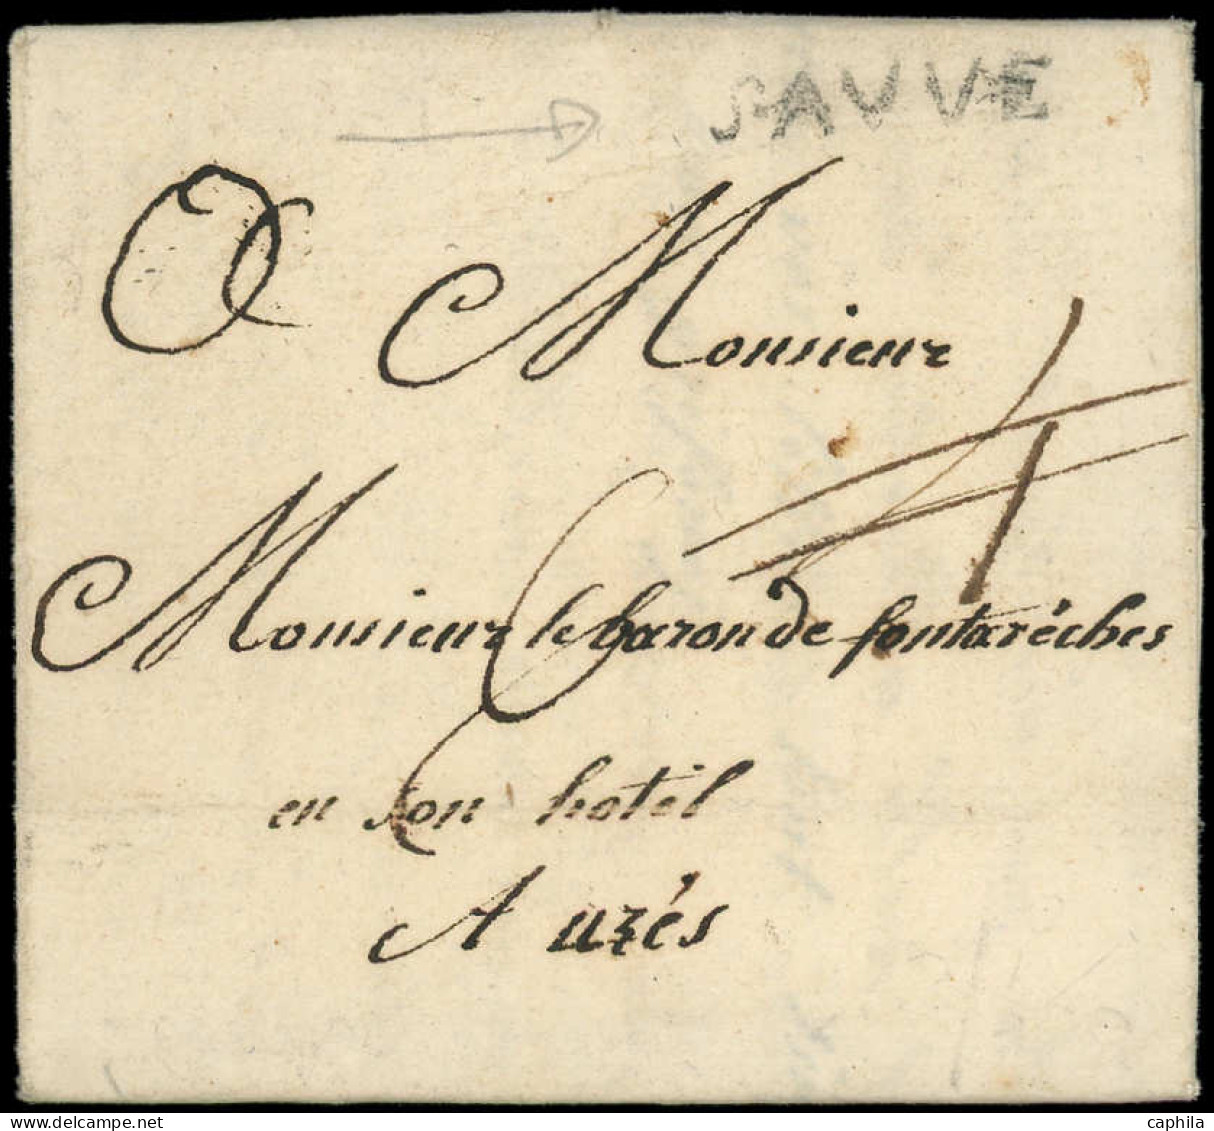 SAUVE
A Monsieur
4
Monsieur le baron de fontaréches
en son hotel
A uzés
caphila